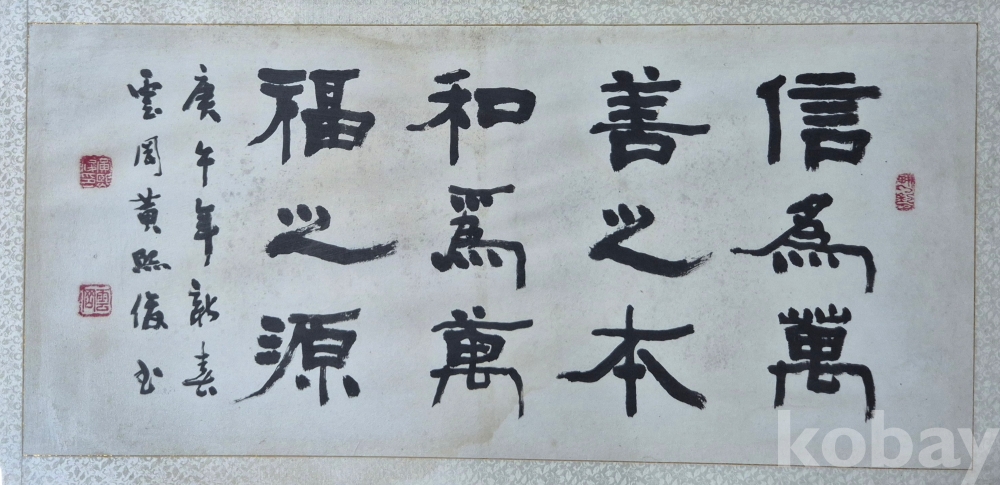 信為萬
善之本
和爲萬
福之源
庚午年新春
雲岡黃熙俊书
kobay